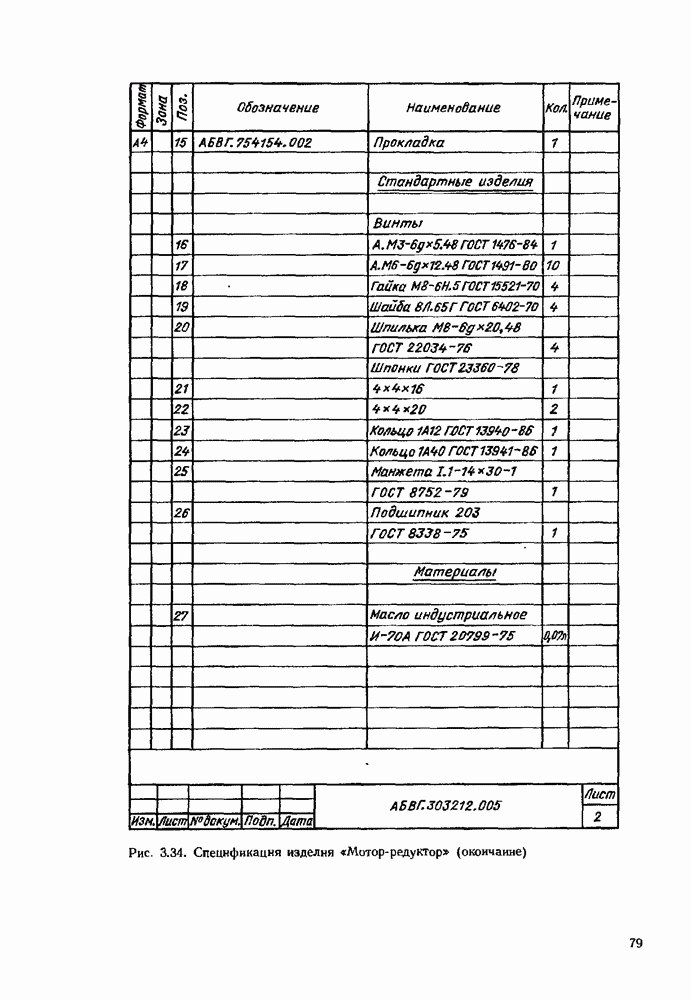 Формат Зона Поз. Обозначение Наименование Кол. Приме-
чание
А4 15 АБВГ.754154.002 Прокладка 1
Стандартные изделия
Винты
16 А.М3-6g×5.48 ГОСТ 1476-84 1
17 А.М6-6g×12.48 ГОСТ 1491-80 10
18 Гайка М8-6Н.5 ГОСТ 15521-70 4
19 Шайба 8Л.65Г ГОСТ 6402-70 4
20 Шпилька М8-6g×20,48
ГОСТ 22034-76 4
Шпонки ГОСТ 23360-78
21 4×4×16 1
22 4×4×20 2
23 Кольцо 1А12 ГОСТ 13940-86 1
24 Кольцо 1А40 ГОСТ 13941-86 1
25 Манжета I.1-14×30-1
ГОСТ 8752-79 1
26 Подшипник 203
ГОСТ 8338-75 1
Материалы
27 Масло индустриальное
И-70А ГОСТ 20799-75 0,07л
АБВГ.303212.005 Лист
2
Изм. Лист № докум. Подп. Дата
Рис. 3.34. Спецификация изделия «Мотор-редуктор» (окончание)
79